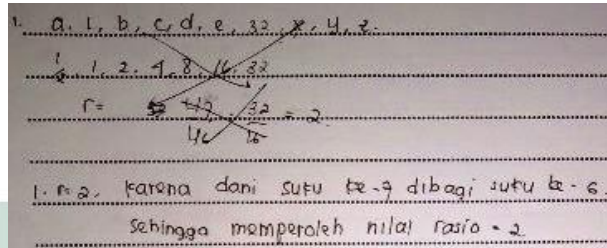 1. a, 1, b, c, d, e, 32, x, y, z.
1/2, 1, 2, 4, 8, 16, 32
r = 32/16 = 2
1. r = 2, karena dari suku ke-7 dibagi suku ke-6
Sehingga memperoleh nilai rasio = 2